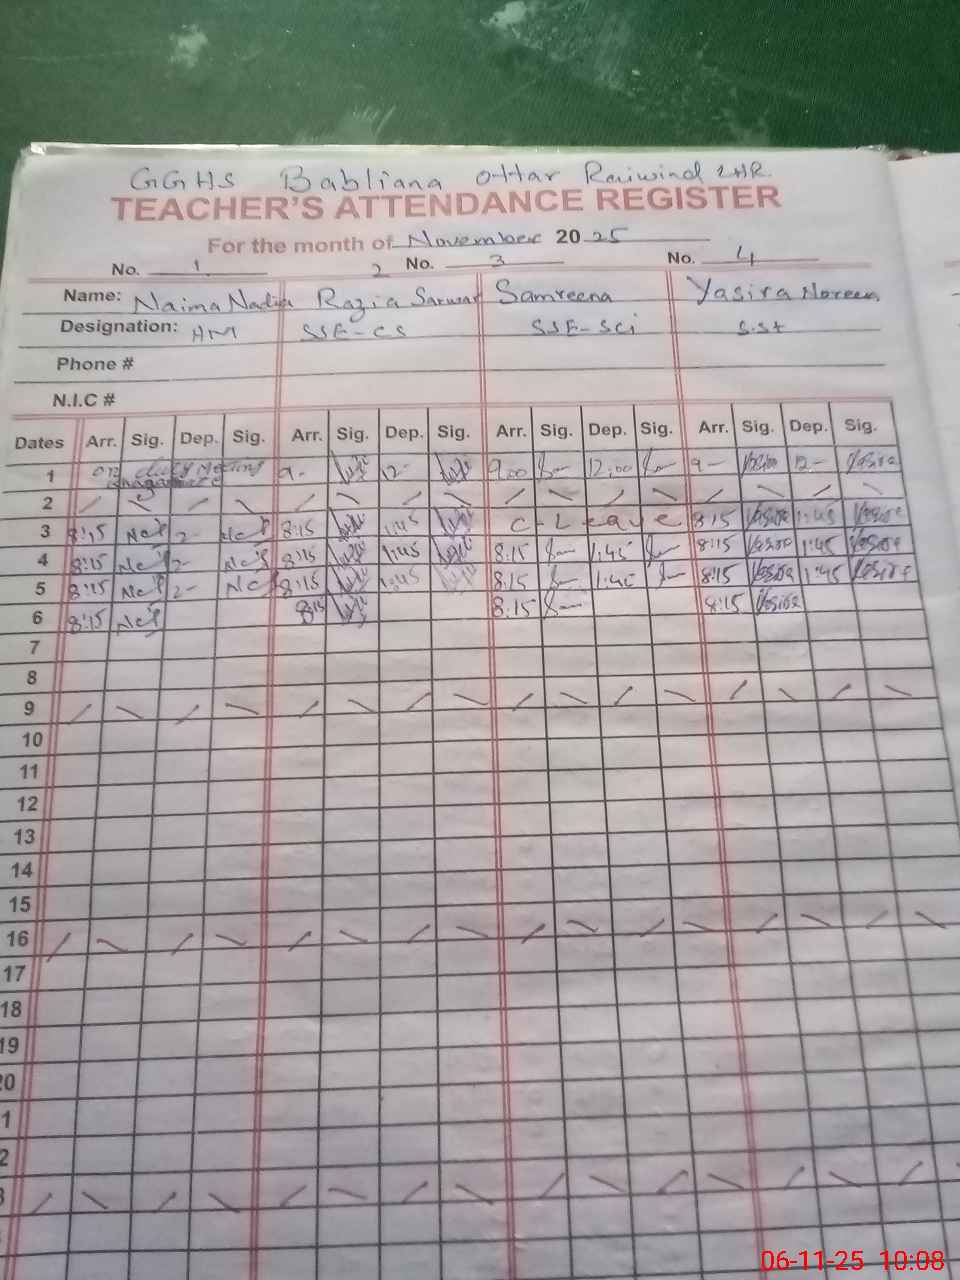 GGHS Babliana Ottar Raiwind LHR.
TEACHER'S ATTENDANCE REGISTER
For the month of November 2025
No. 1 2 No. 3 No. 4
Name: Naima Nadia Razia Sarwar Samreena Yasira Noreen
Designation: HM SSE-CS SSE-Sci S.St
Phone #
N.I.C #
Dates Arr. Sig. Dep. Sig. Arr. Sig. Dep. Sig. Arr. Sig. Dep. Sig. Arr. Sig. Dep. Sig.
1 on duty Meeting 9- 12- 9:00 12:00 9- Yasira 12- Yasira
2
3 8:15 2- 8:15 1:45 C-Leave 8:15 Yasira 1:45 Yasira
4 8:15 2- 8:15 1:45 8:15 1:45 8:15 Yasira 1:45 Yasira
5 8:15 2- 8:15 1:45 8:15 1:45 8:15 Yasira 1:45 Yasira
6 8:15 8:15 8:15 8:15 Yasira
7
8
9
10
11
12
13
14
15
16
17
18
19
20
1
2
3
06-11-25 10:08